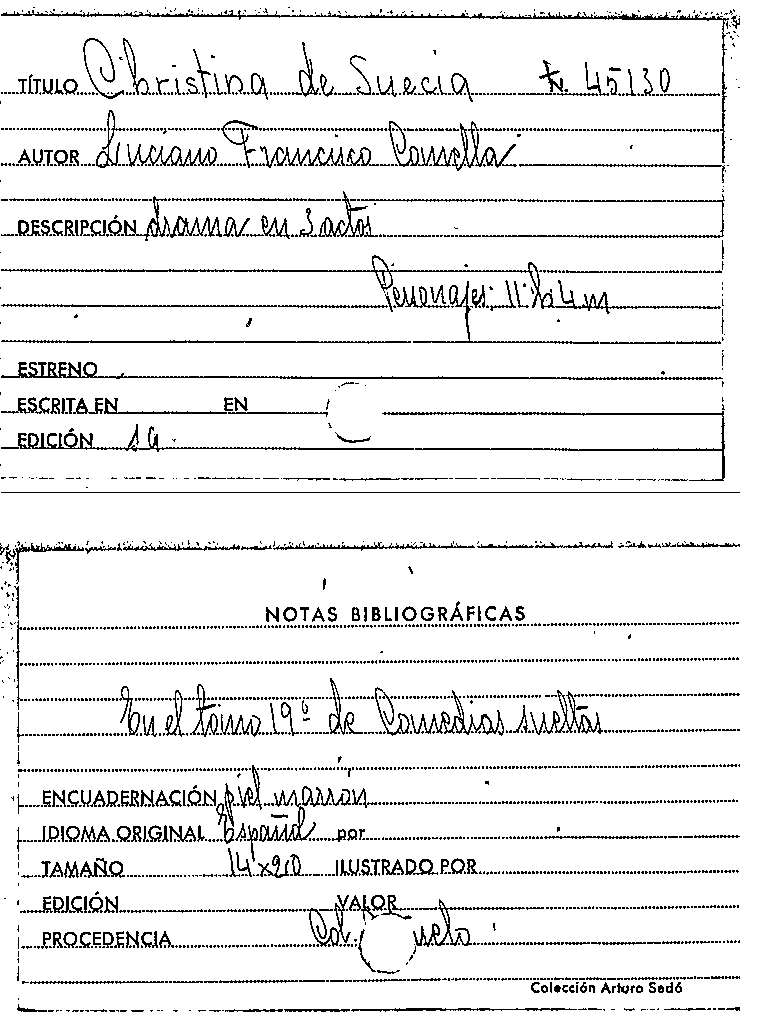 TÍTULO Christina de Suecia 45130
AUTOR Luciano Francisco Comella
DESCRIPCIÓN drama en 3 actos
Personajes: 11 h 4 m
ESTRENO
ESCRITA EN EN
EDICIÓN
NOTAS BIBLIOGRÁFICAS
En el tomo 19º de Comedias sueltas
ENCUADERNACIÓN piel marrón
IDIOMA ORIGINAL Español por
TAMAÑO 14'x20 ILUSTRADO POR
EDICIÓN VALOR
PROCEDENCIA
Colección Arturo Sedó